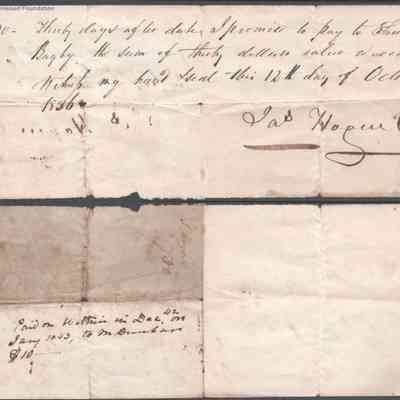 Foundation
Thirty days after date, I promise to pay to
Bagby the sum of thirty dollars value
Witness my hand & Seal this 12th day of Oct
1836
Jas Hogue
Paid on Within in Dec 42 or
Jany 1843, to M Dunham
$10